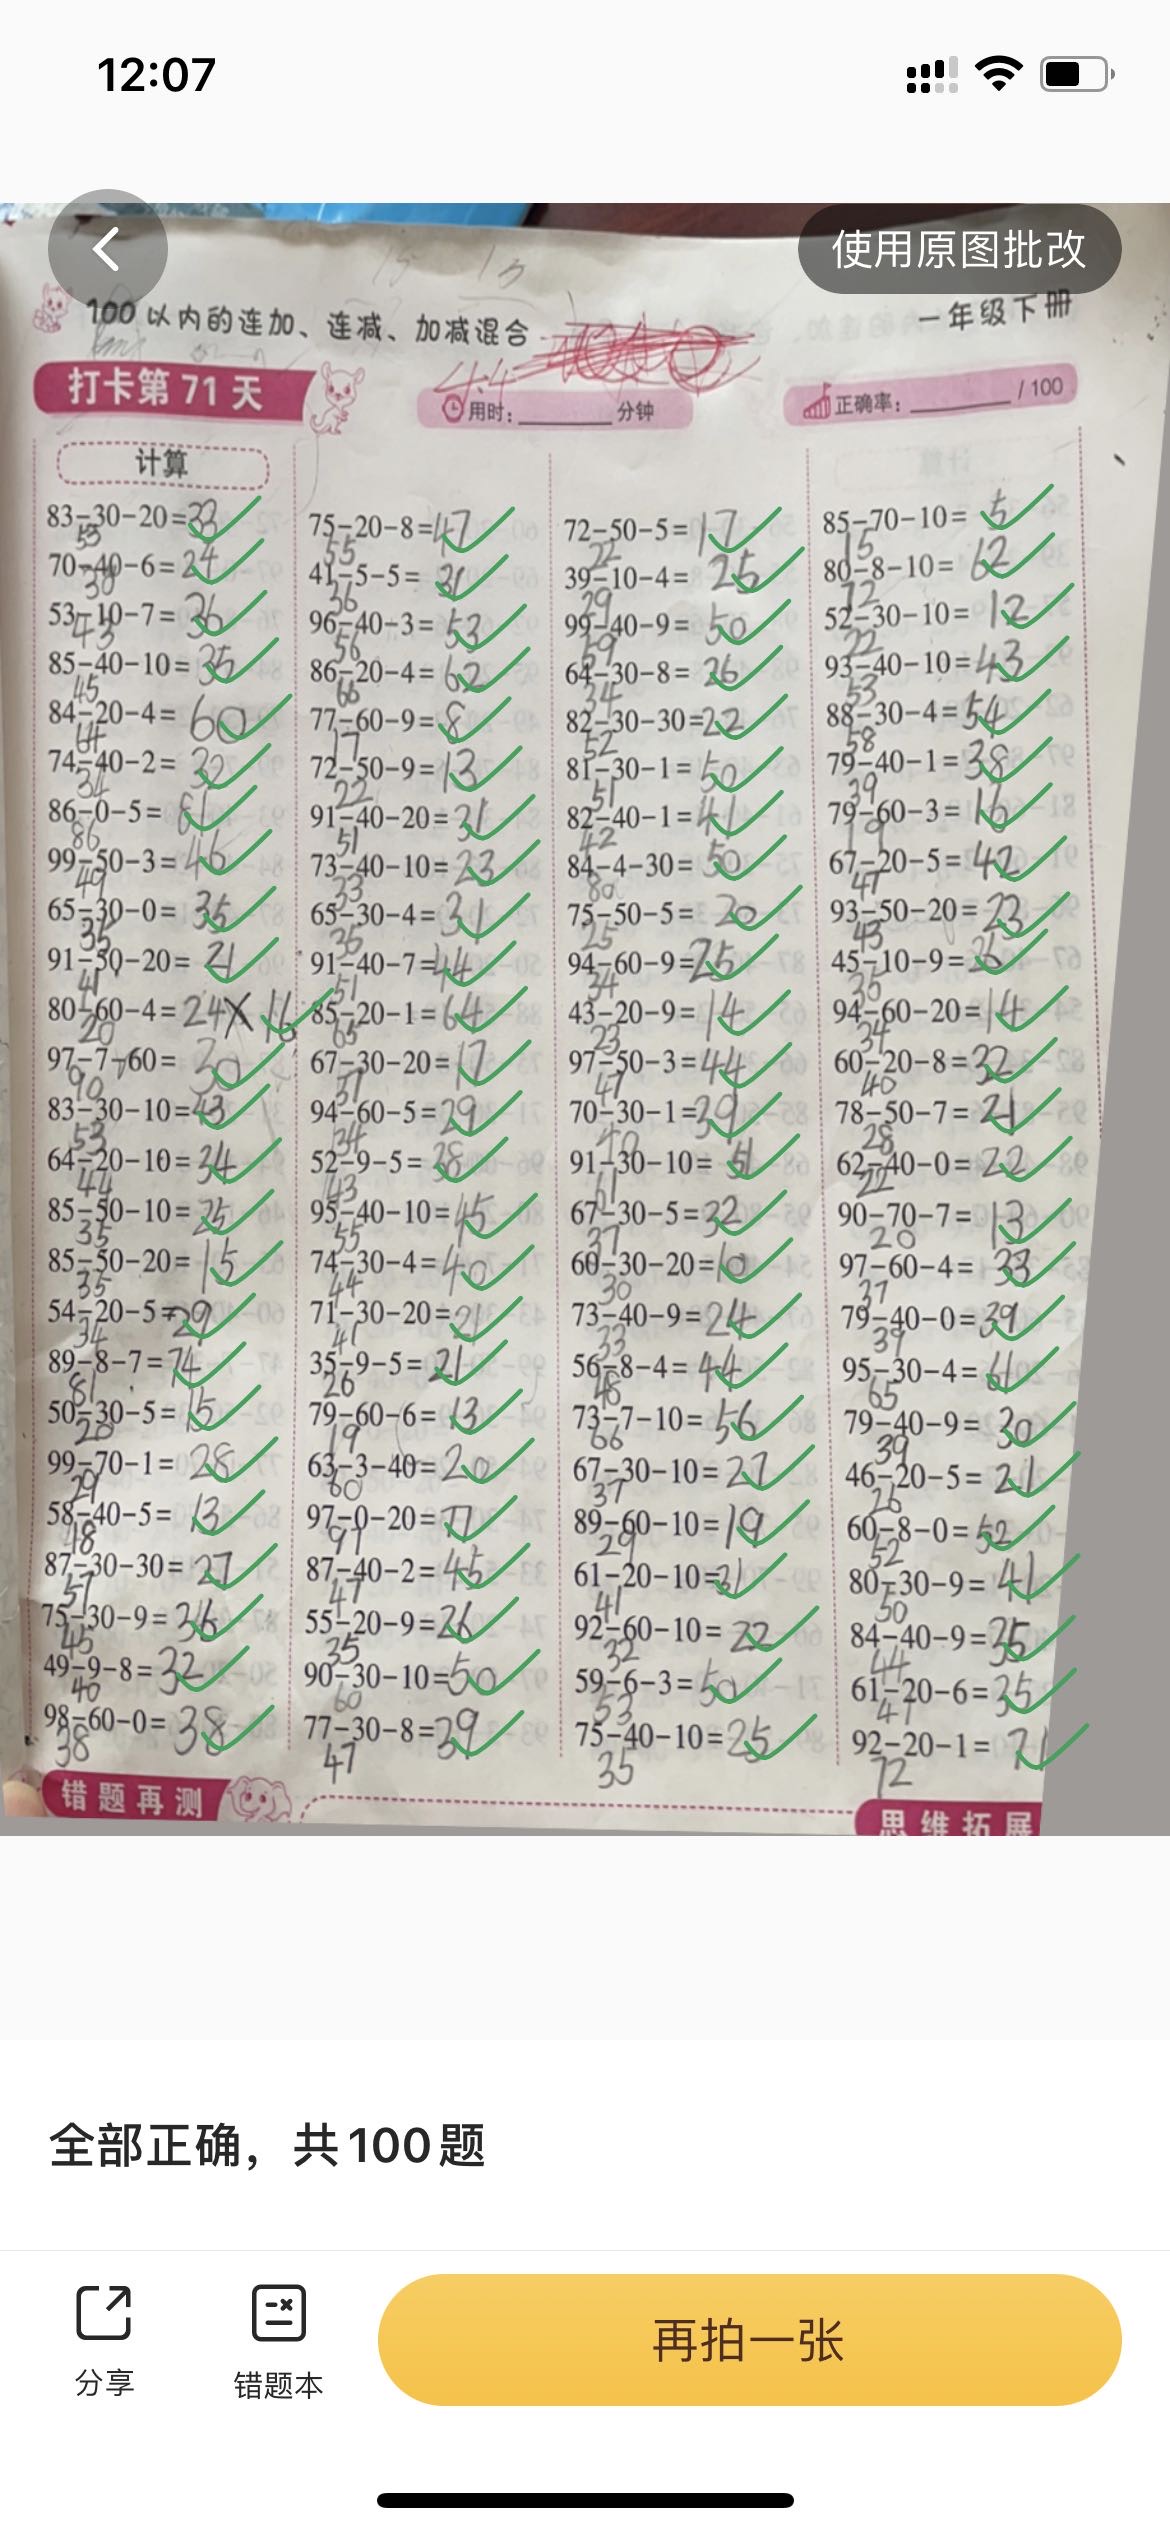 12:07
使用原图批改
100以内的连加、连减、加减混合
一年级下册
打卡第71天
4.4
用时：________分钟
正确率：________/100
计算
83-30-20=33
53
70-40-6=24
30
53-10-7=36
43
85-40-10=35
45
84-20-4=60
64
74-40-2=32
34
86-0-5=81
86
99-50-3=46
49
65-30-0=35
35
91-50-20=21
41
80-60-4=24× 16
20
97-7-60=30
90
83-30-10=43
53
64-20-10=34
44
85-50-10=25
35
85-50-20=15
35
54-20-5=29
34
89-8-7=74
81
50-30-5=15
20
99-70-1=28
29
58-40-5=13
18
87-30-30=27
57
75-30-9=36
45
49-9-8=32
40
98-60-0=38
38
75-20-8=47
55
41-5-5=31
36
96-40-3=53
56
86-20-4=62
66
77-60-9=8
17
72-50-9=13
22
91-40-20=31
51
73-40-10=23
33
65-30-4=31
35
91-40-7=44
51
85-20-1=64
65
67-30-20=17
37
94-60-5=29
34
52-9-5=38
43
95-40-10=45
55
74-30-4=40
44
71-30-20=21
41
35-9-5=21
26
79-60-6=13
19
63-3-40=20
60
97-0-20=77
97
87-40-2=45
47
55-20-9=26
35
90-30-10=50
60
77-30-8=39
47
72-50-5=17
22
39-10-4=25
29
99-40-9=50
59
64-30-8=26
34
82-30-30=22
52
81-30-1=50
51
82-40-1=41
42
84-4-30=50
80
75-50-5=20
25
94-60-9=25
34
43-20-9=14
23
97-50-3=44
47
70-30-1=39
40
91-30-10=51
61
67-30-5=32
37
60-30-20=10
30
73-40-9=24
33
56-8-4=44
48
73-7-10=56
66
67-30-10=27
37
89-60-10=19
29
61-20-10=31
41
92-60-10=22
32
59-6-3=50
53
75-40-10=25
35
85-70-10=5
15
80-8-10=62
72
52-30-10=12
22
93-40-10=43
53
88-30-4=54
58
79-40-1=38
39
79-60-3=16
19
67-20-5=42
47
93-50-20=23
43
45-10-9=26
35
94-60-20=14
34
60-20-8=32
40
78-50-7=21
28
62-40-0=22
22
90-70-7=13
20
97-60-4=33
37
79-40-0=39
39
95-30-4=61
65
79-40-9=30
39
46-20-5=21
26
60-8-0=52
52
80-30-9=41
50
84-40-9=35
44
61-20-6=35
41
92-20-1=71
72
错题再测
思维拓展
全部正确，共100题
分享
错题本
再拍一张